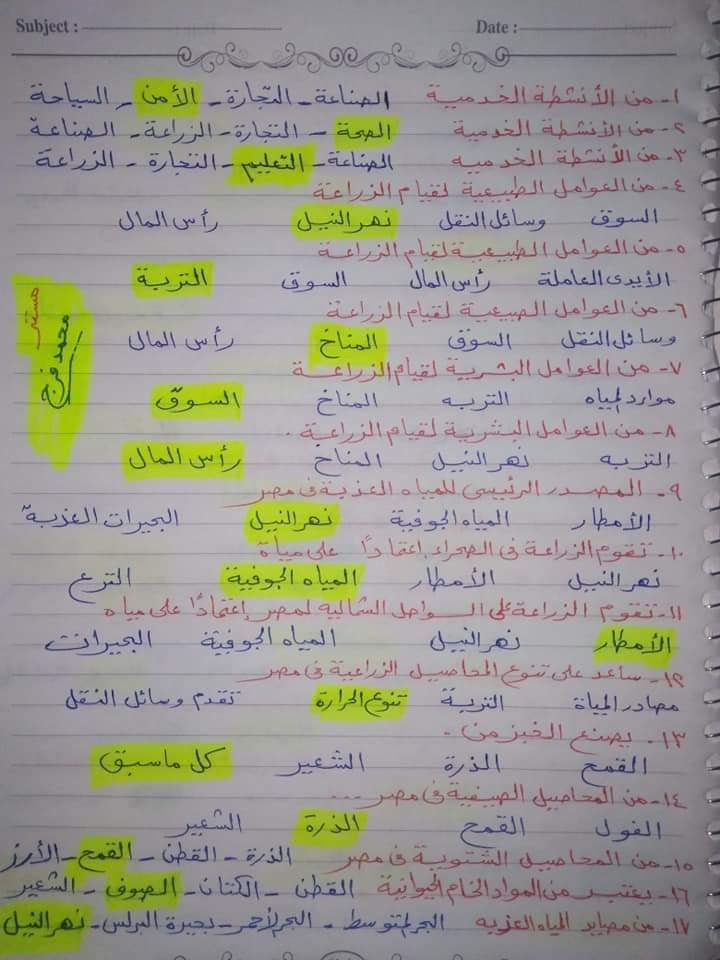 Subject : Date :
١- من الأنشطة الخدمية الصناعة - التجارة - الأمن - السياحة
٢- من الأنشطة الخدمية الصحة - التجارة - الزراعة - الصناعة
٣- من الأنشطة الخدميه الصناعة - التعليم - التجارة - الزراعة
٤- من العوامل الطبيعية لقيام الزراعة
السوق وسائل النقل نهر النيل رأس المال
٥- من العوامل الطبيعية لقيام الزراعة
الأيدى العاملة رأس المال السوق التربة
٦- من العوامل الطبيعية لقيام الزراعة
وسائل النقل السوق المناخ رأس المال
٧- من العوامل البشرية لقيام الزراعة
موارد المياه التربه المناخ السوق
٨- من العوامل البشرية لقيام الزراعة .
التربه نهر النيل المناخ رأس المال
مستر
محمد فرج
٩- المصدر الرئيسى للمياه العذبة فى مصر
الأمطار المياه الجوفية نهر النيل البحيرات العذبة
١٠- تقوم الزراعة فى الصحراء إعتمادًا على مياة
نهر النيل الأمطار المياه الجوفية الترع
١١- تقوم الزراعة على السواحل الشمالية لمصر إعتمادًا على مياه
الأمطار نهر النيل المياه الجوفية البحيرات
١٢- ساعد على تنوع المحاصيل الزراعية فى مصر
مصادر المياة التربة تنوع الحرارة تقدم وسائل النقل
١٣- يصنع الخبز من .
القمح الذرة الشعير كل ماسبق
١٤- من المحاصيل الصيفية فى مصر ...
الفول القمح الذرة الشعير
١٥- من المحاصيل الشتوية فى مصر الذرة - القطن - القمح - الأرز
١٦- يعتبر من المواد الخام الحيوانية القطن - الكتان - الصوف - الشعير
١٧- من مصايد المياه العذبه البحر المتوسط - البحر الأحمر - بحيرة البرلس - نهر النيل